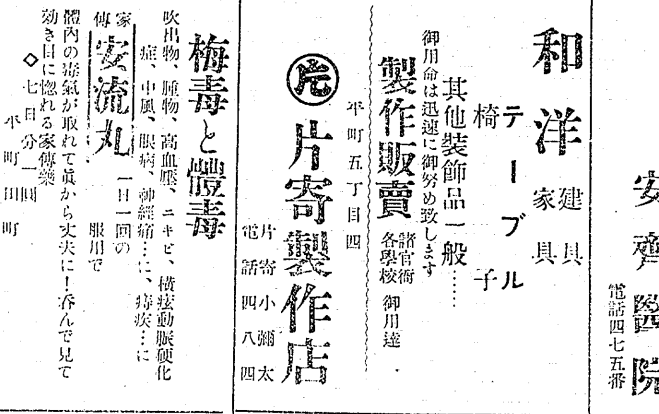 安齊醫院
電話四七五番
和洋
建具
家具
テーブル
椅子
其他裝飾品一般……
御用命は迅速に御努め致します
製作販賣
諸官衙
各學校
御用達
平町五丁目四
片
片寄製作店
片寄小彌太
電話四八四
梅毒と體毒
吹出物、腫物、高血壓、ニキビ、橫痃動脈硬化
症、中風、眼病、神經痛…に、痔疾…に
家傳
安流丸
一日一回の
服用で
體內の毒氣が取れて眞から丈夫に!呑んで見て
効き目に惚れる家傳藥
◇七日分一圓
平町田町